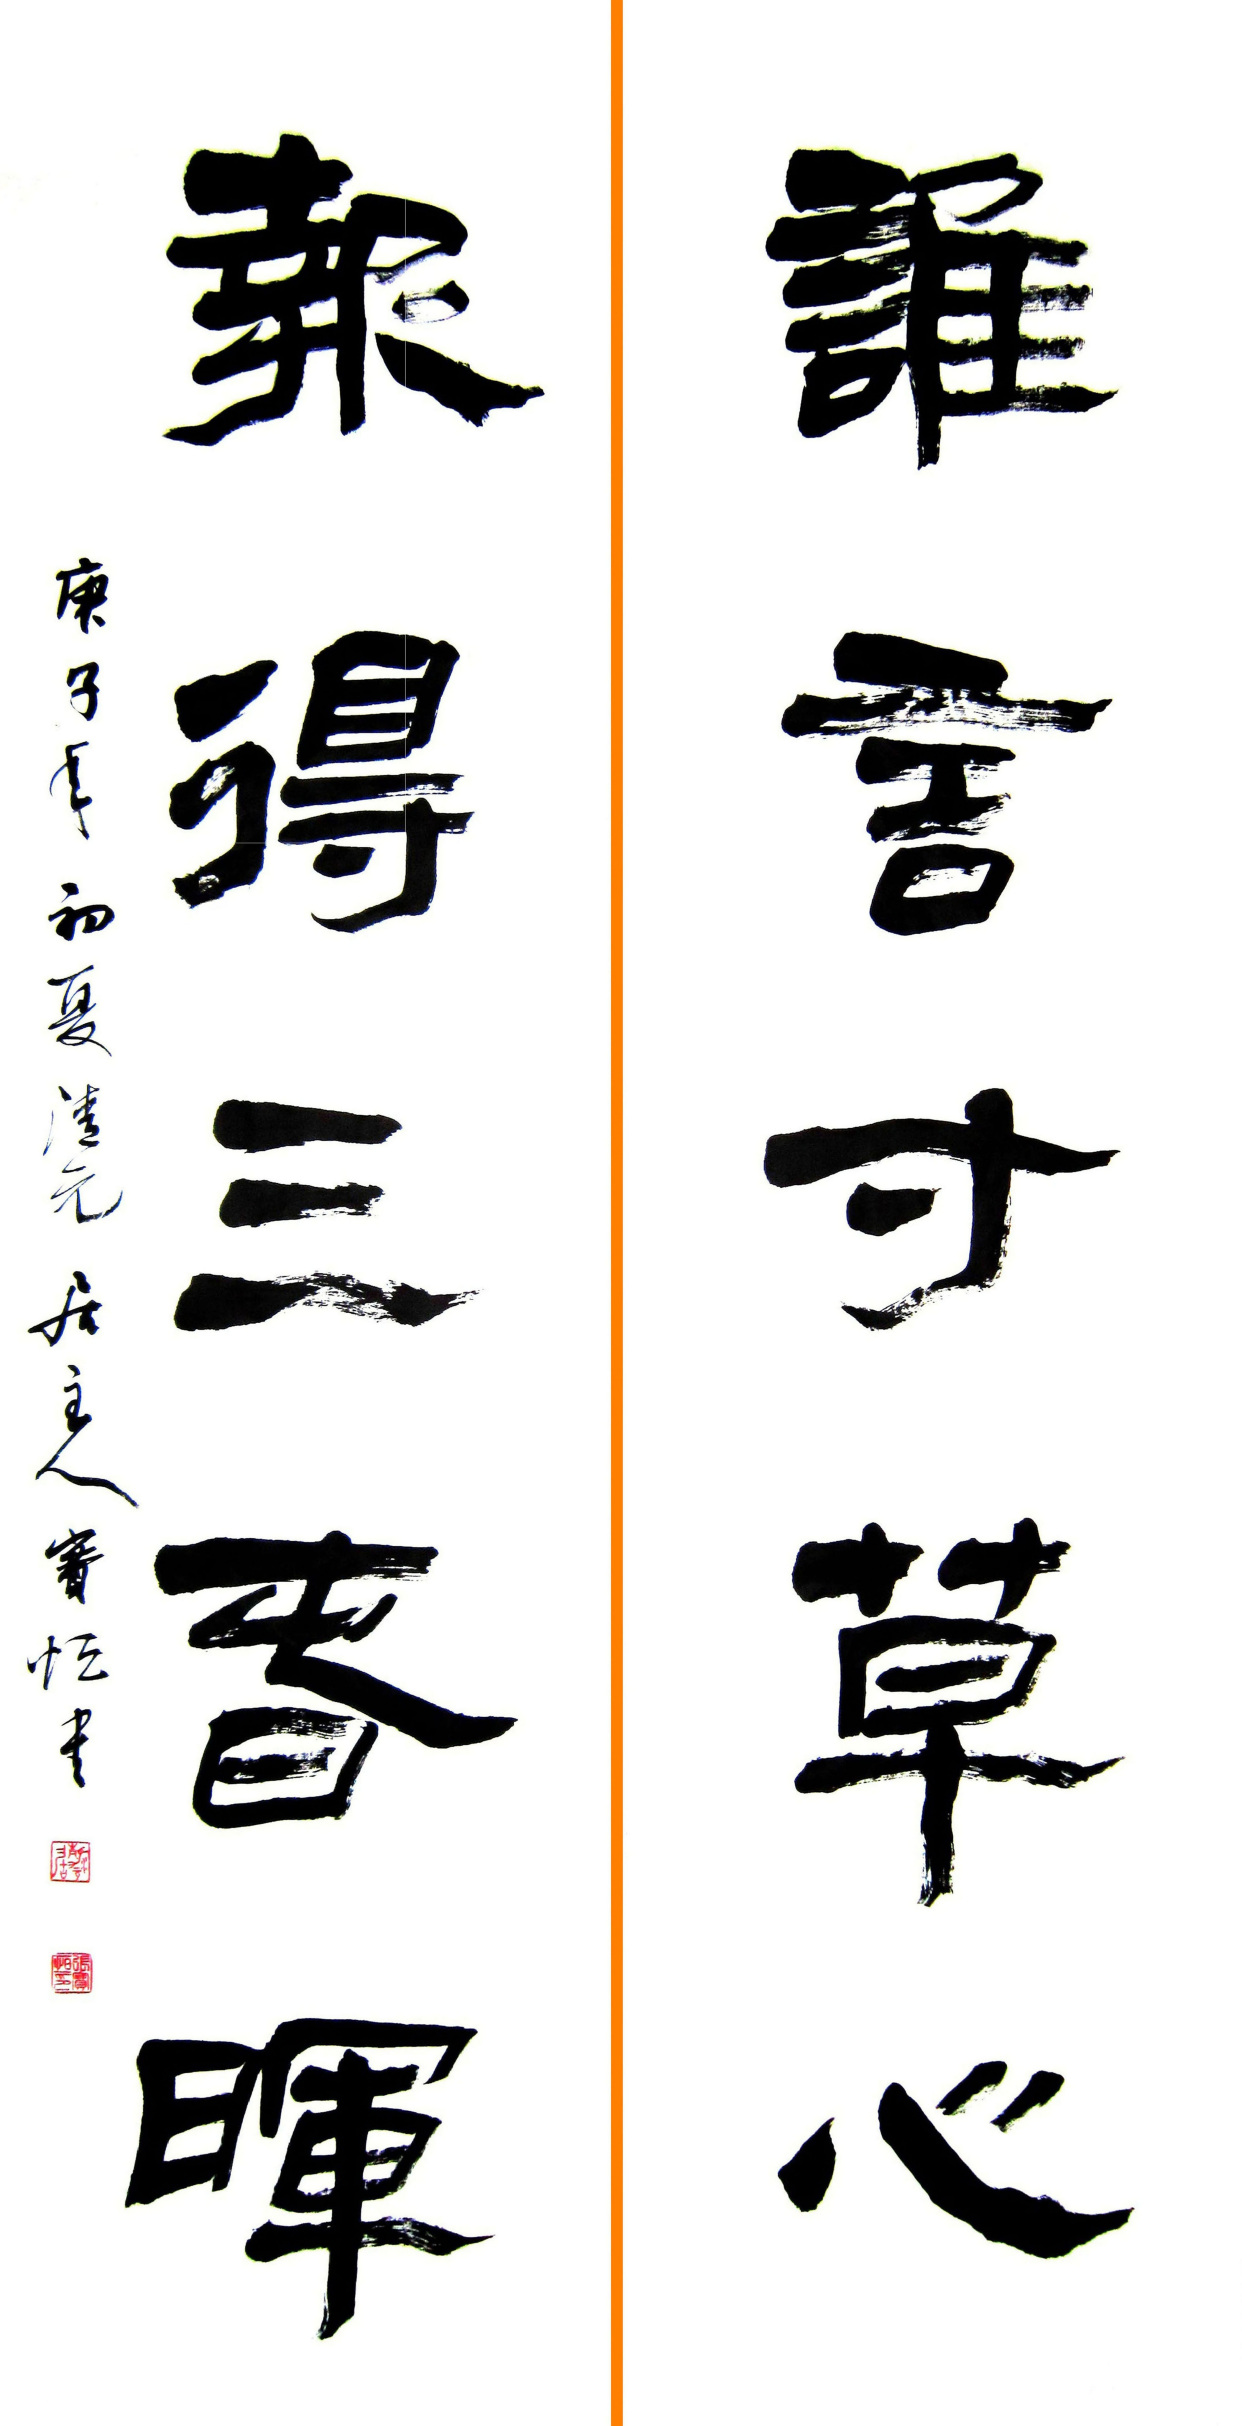 誰言寸草心
報得三春暉
庚子年初夏清元居主人寶恒書